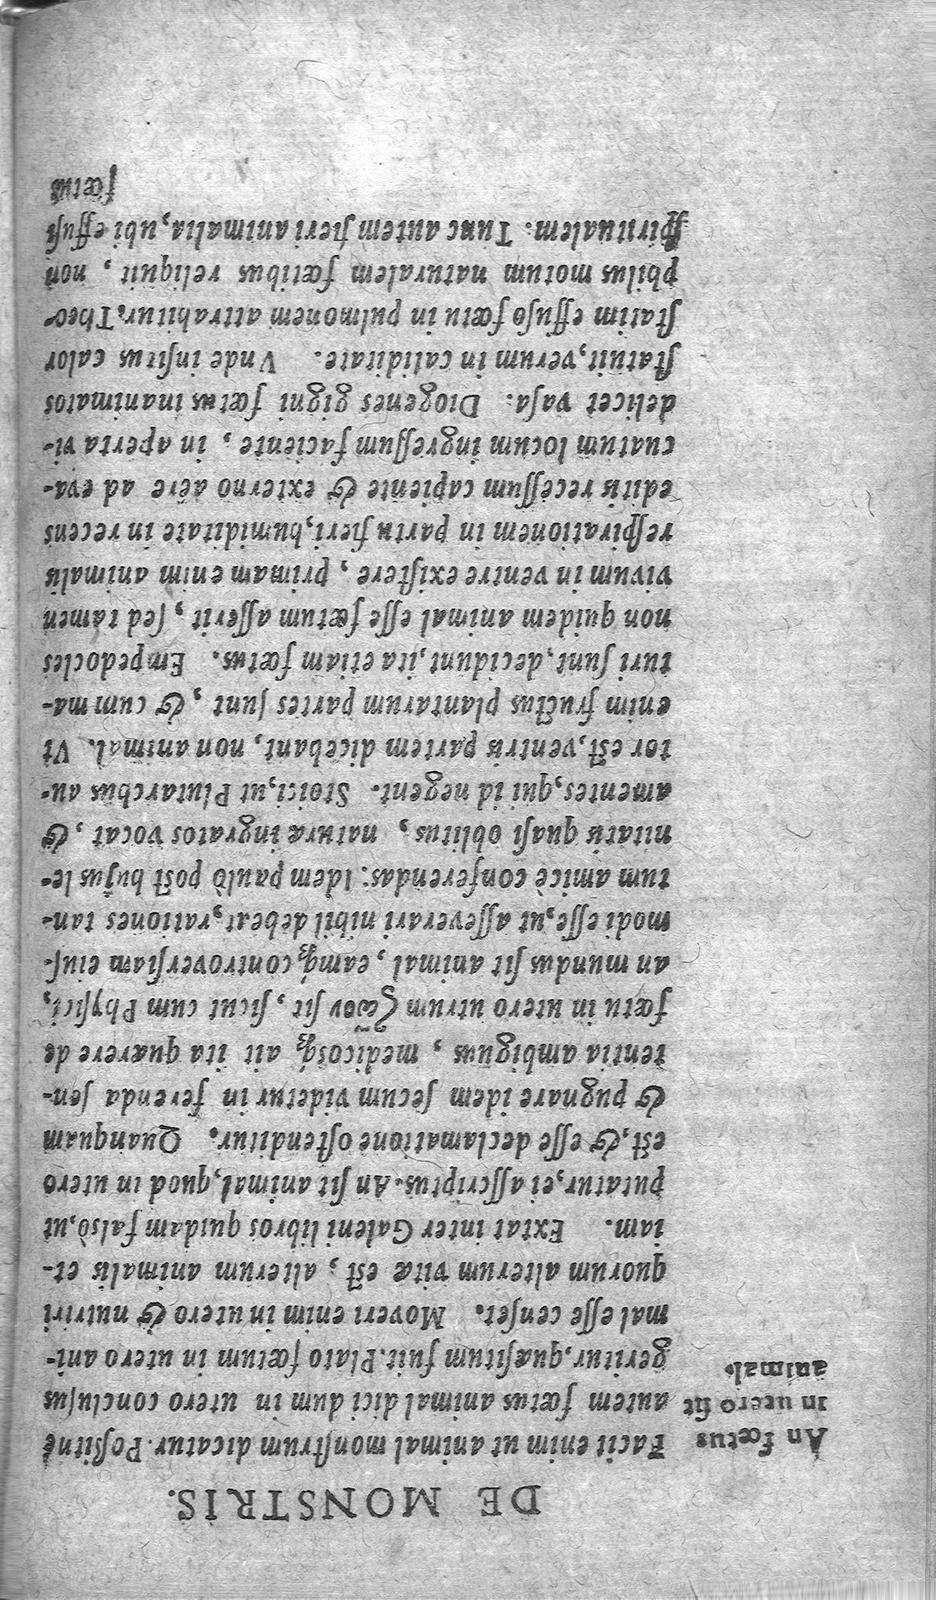 DE MONSTRIS.
An fœtus
in utero sit
animal.
Facit enim ut animal monstrum dicatur. Possitne
autem fœtus animal dici dum in utero conclusus
geritur, quæsitum fuit. Plato fœtum in utero ani-
mal esse censet. Moveri enim in utero & nutriri
quorum alterum vitæ est, alterum animalis et-
iam. Extat inter Galeni libros quidam falsò, ut
putatur, ei asscriptus. An sit animal, quod in utero
est, & esse declamatione ostenditur. Quanquam
& pugnare idem secum videtur in ferenda sen-
tentia ambiguus, medicosq́ ait ita quærere de
fœtu in utero utrum ζῶον sit, sicut cum Physici,
an mundus sit animal, eamq́, controversiam eius-
modi esse, ut asseverari nihil debeat, rationes tan-
tum amicè conferendas: Idem paulò post hujus le-
nitatis quasi oblitus, naturæ ingratos vocat, &
amentes, qui id negent. Stoici, ut Plutarchus au-
tor est, ventris partem dicebant, non animal. Vt
enim fructus plantarum partes sunt, & cum ma-
turi sunt, decidunt, ita etiam fœtus. Empedocles
non quidem animal esse fœtum asserit, sed tamen
vivum in ventre existere, primam enim animalis
respirationem in partu fieri, humiditate in recens
editis recessum capiente & externo aëre ad eva-
cuatum locum ingressum faciente, in aperta vi-
delicet vasa. Diogenes gigni fœtus inanimatos
statuit, verum in caliditate. Vnde insitus calor
statim effuso fœtu in pulmonem attrahitur, Theo-
philus motum naturalem fœtibus reliquit, non
spiritualem. Tunc autem fieri animalia, ubi effusi
fœtus